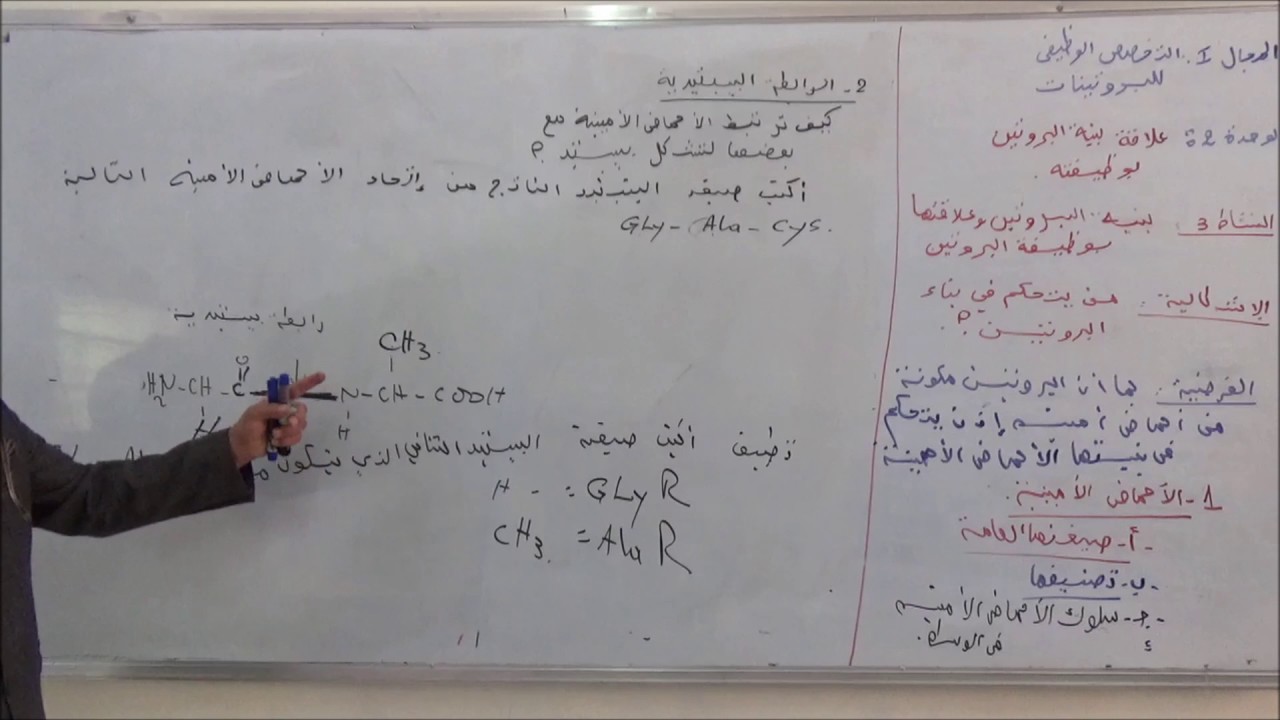 المجال I. التخصص الوظيفي
للبروتينات
لوحدة 2: علاقة بنية البروتين
بوظيفته.
النشاط 3 بنية البروتين وعلاقتها
بوظيفة البروتين
الإشكالية: من يتحكم في بناء
البروتين ؟
الفرضية: بما أن البروتين مكونة
من أحماض أمينية إذن يتحكم
في بنيتها الأحماض الأمينية
1- الأحماض الأمينية:
أ- صيغتها العامة
ب- تصنيفها
ج- سلوك الأحماض الأمينية
في الوسط.
2- الرابطة الببتيدية
كيف ترتبط الأحماض الأمينية مع
بعضها لتتشكل ببتيد ؟
أكتب صيغة الببتيد الناتج من إتحاد الأحماض الأمينية التالية
GLy - Ala - Cys.
رابطة ببتيدية
CH3
O
H2N - CH - C N - CH - COOH
H H
تطبيق أكتب صيغة الببتيد الثنائي الذي يتكون
H - = GLy R
CH3 = Ala R